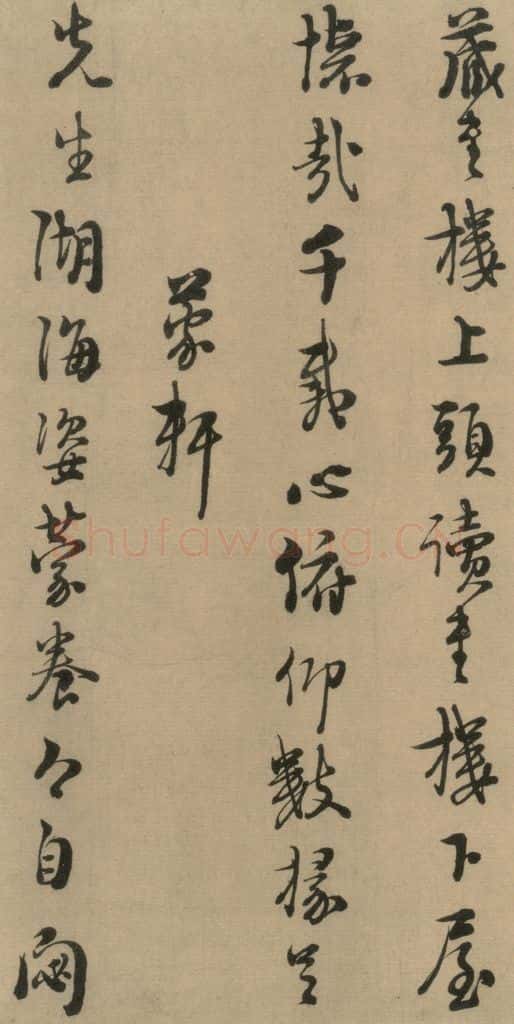 藏書樓上頭讀書樓下屋
懷哉千載心俯仰數椽足
蒙軒
先生湖海姿蒙養今自閟
Shufawang.CN